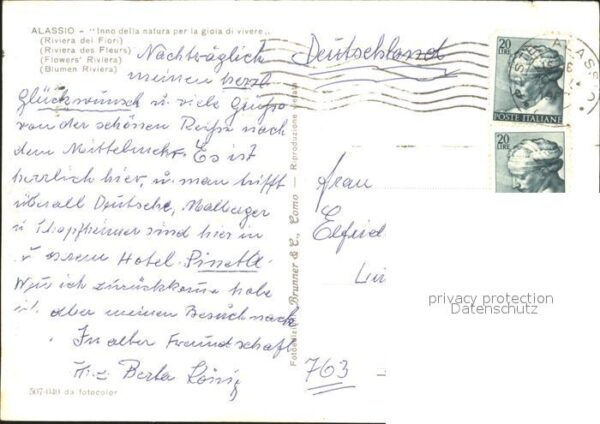 ALASSIO - "Inno della natura per la gioia di vivere"
(Riviera dei Fiori)
(Riviera des Fleurs)
(Flowers' Riviera)
(Blumen Riviera)
Nachträglich
meinen herzl
Glückwunsch u. viele Grüsse
von der schönen Reise nach
dem Mittelmeer. Es ist
herrlich hier, u. man trifft
überall Deutsche, Malberger
u Schopfheimer sind hier in
unserem Hotel Pinetta.
Wenn ich zurückkomme hole
ich aber meinen Besuch nach
In alter Freundschaft
Berta König
507-040 da fotocolor
Brunner & C., Como - Riproduzione vietata
Deutschland
20
LIRE
POSTE ITALIANE
20
LIRE
ALASSIO
Frau
Elfried
763
privacy protection
Datenschutz